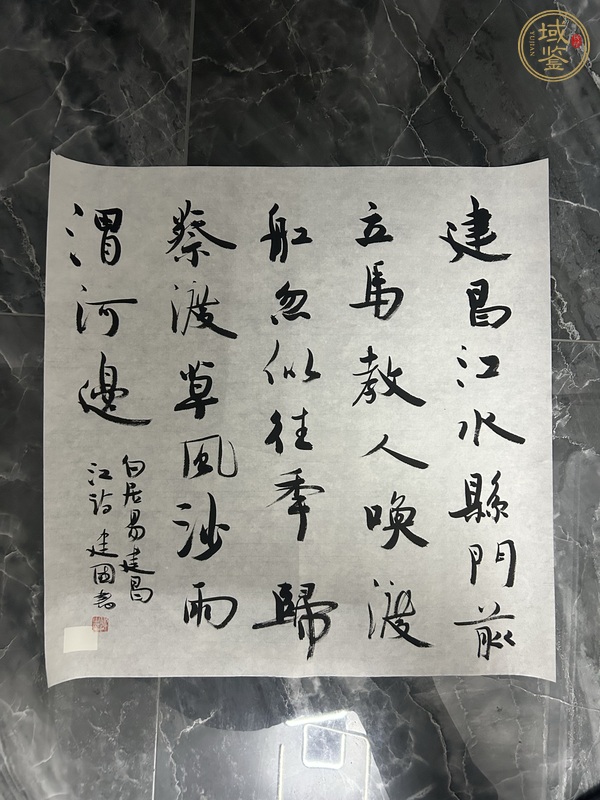 建昌江水縣門前
立馬教人喚渡
舡忽似往年歸
蔡渡草風沙雨
渭河邊
白居易建昌
江詩 建國書
域鉴
YUJIAN